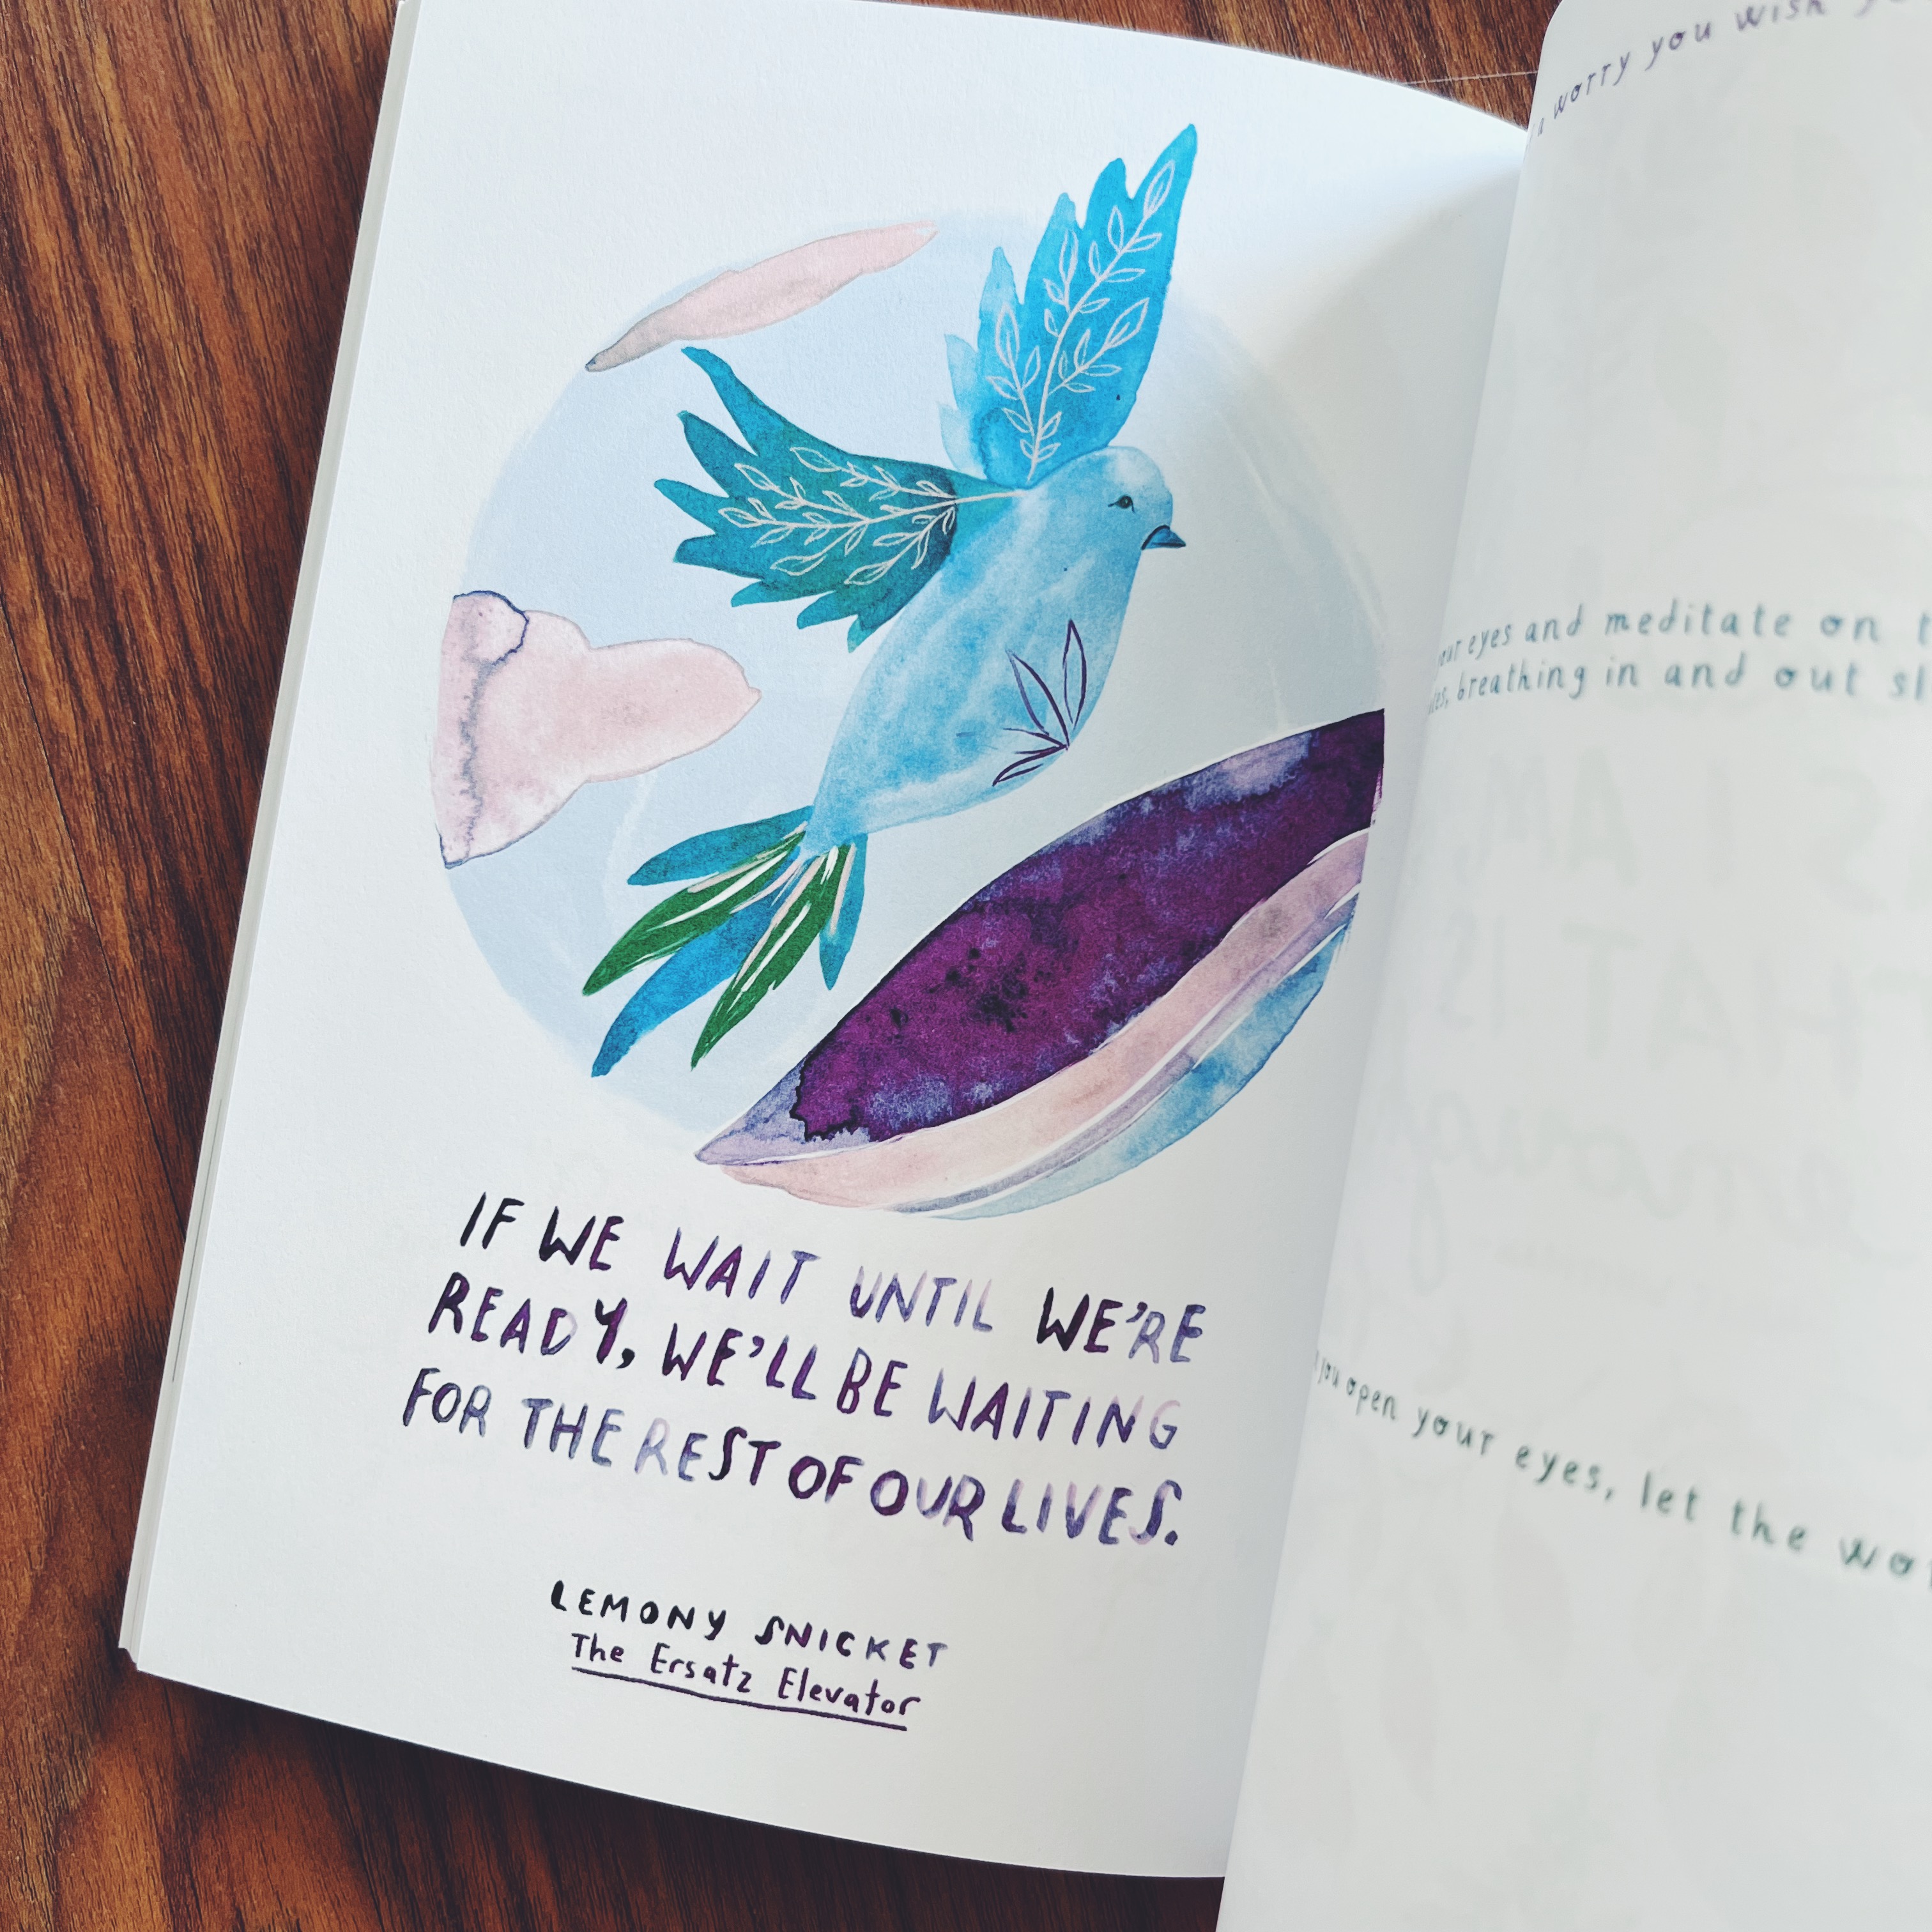 IF WE WAIT UNTIL WE'RE
READY, WE'LL BE WAITING
FOR THE REST OF OUR LIVES.
LEMONY SNICKET
The Ersatz Elevator
a worry you wish
eyes and meditate on
breathing in and out
you open your eyes, let the